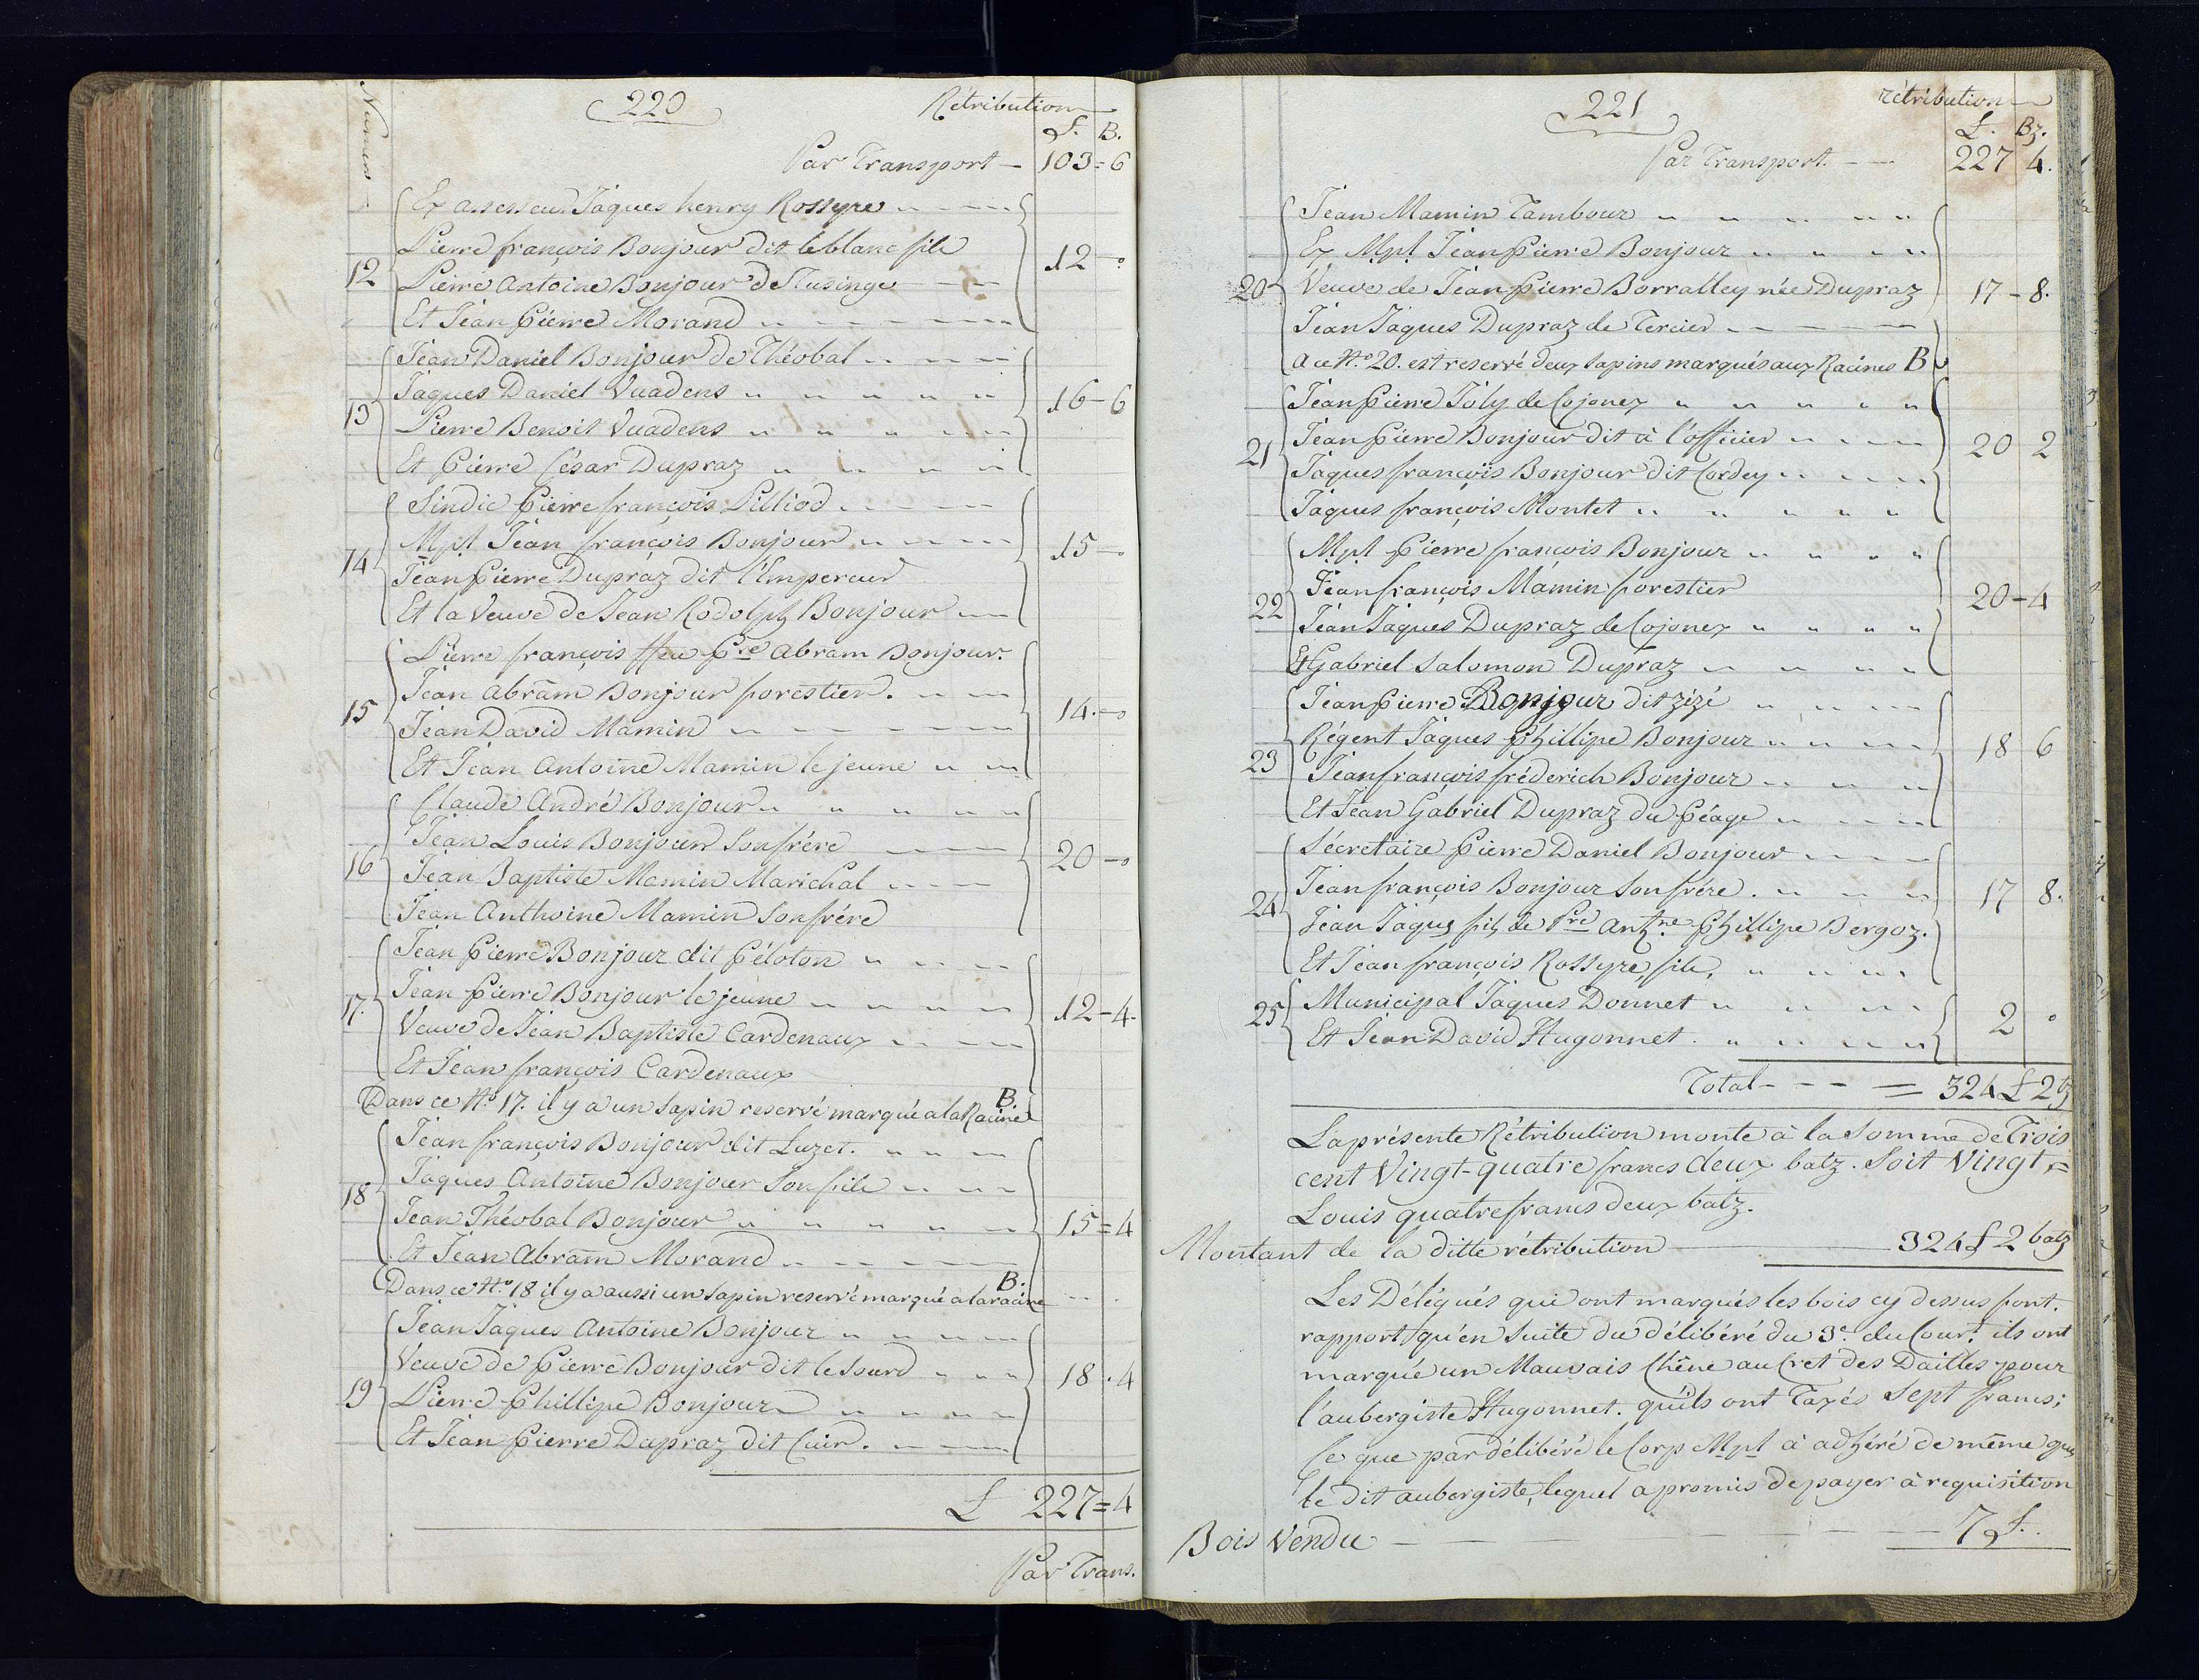 220
Numero
Rétribution
£. B.
Par Transport — 103 = 6
Ex assesseur Jaques henry Rossyre
Pierre françois Bonjour dit le blanc fils
12 Pierre Antoine Bonjour de 12 — °
Et Jean Pierre Morand
Jean Daniel Bonjour de Théobal
Jaques Daniel Vuadens 16 — 6
13 Pierre Benoit Vuadens
Et Pierre César Dupraz
Sindic Pierre françois Pilliod
Mpl Jean françois Bonjour 15 — °
14 Jean Pierre Dupraz dit l'Empereur
Et la Veuve de Jean Rodolph Bonjour
Pierre françois ffeu Pre Abram Bonjour.
Jean Abram Bonjour forestier.
15 Jean David Mamin 14. — °
Et Jean Antoine Mamin le jeune
Claude André Bonjour
Jean Louis Bonjour Son frére 20 — °
16 Jean Baptiste Mamin Maréchal
Jean Anthoine Mamin Son frére
Jean Pierre Bonjour dit Péloton
Jean Pierre Bonjour le jeune
17. Veuve de Jean Baptiste Cardenaux 12 — 4.
Et Jean françois Cardenaux
Dans ce No. 17. il y a un Sapin reservé marqué a la Racine B.
Jean françois Bonjour dit Luzet.
Jaques Antoine Bonjour Son fils
18 Jean Théobal Bonjour 15 = 4
Et Jean Abram Morand
Dans ce No. 18 il y a aussi un Sapin reservé marqué a la racine B.
Jean Jaques Antoine Bonjour
Veuve de Pierre Bonjour dit le Sourd 18 . 4
19 Pierre Phillipe Bonjour
Et Jean Pierre Dupraz dit Cuir.
£ 227 = 4
Par Trans.
221
rétribution
£. Bz.
Par Transport. — 227 4.
Jean Mamin Tambour
Ex Mpl Jean Pierre Bonjour
20 Veuve de Jean Pierre Borralley née Dupraz 17 — 8.
Jean Jaques Dupraz de Tercier
a ce No. 20. est reservé deux Sapins marqués aux Racines B
Jean Pierre Joly de Cojonex
21 Jean Pierre Bonjour dit à l'officier 20 2
Jaques françois Bonjour dit Cordey
Jaques françois Montet
Mpl Pierre françois Bonjour
Jean françois Mamin forestier
22 Jean Jaques Dupraz de Cojonex 20 — 4
Et Gabriel Salomon Dupraz
Jean Pierre Bonjour dit zizi
Régent Jaques Phillipe Bonjour 18 6
23 Jean françois fréderich Bonjour
Et Jean Gabriel Dupraz du Péage
Sécretaire Pierre Daniel Bonjour
Jean françois Bonjour Son frére. 17 8.
24 Jean Jaques fils de Pre Anthne Phillipe Bergoz.
Et Jean françois Rossyre, fils,
25 Municipal Jaques Donnet 2 °
Et Jean David Hugonnet.
Total — — — = 324 £ 2 bz
La présente Rétribution monte à la Somme de Trois
cent Vingt-quatre francs deux batz. Soit Vingt =
Louis quatre francs deux batz.
Montant de la ditte rétribution — 324 £ 2 batz
Les Délégués qui ont marqués les bois cy dessus font.
rapport qu'en Suite du délibéré du 3e. du Court. ils ont
marqué un Mauvais Chêne au Cret des Dailles pour
l'aubergiste Hugonnet. quils ont Taxés Sept francs;
Ce que par délibéré le Corp Mpl à adhéré de même que
le dit aubergiste, lequel a promis de payer à requisition
Bois Vendu — — — — 7 £.